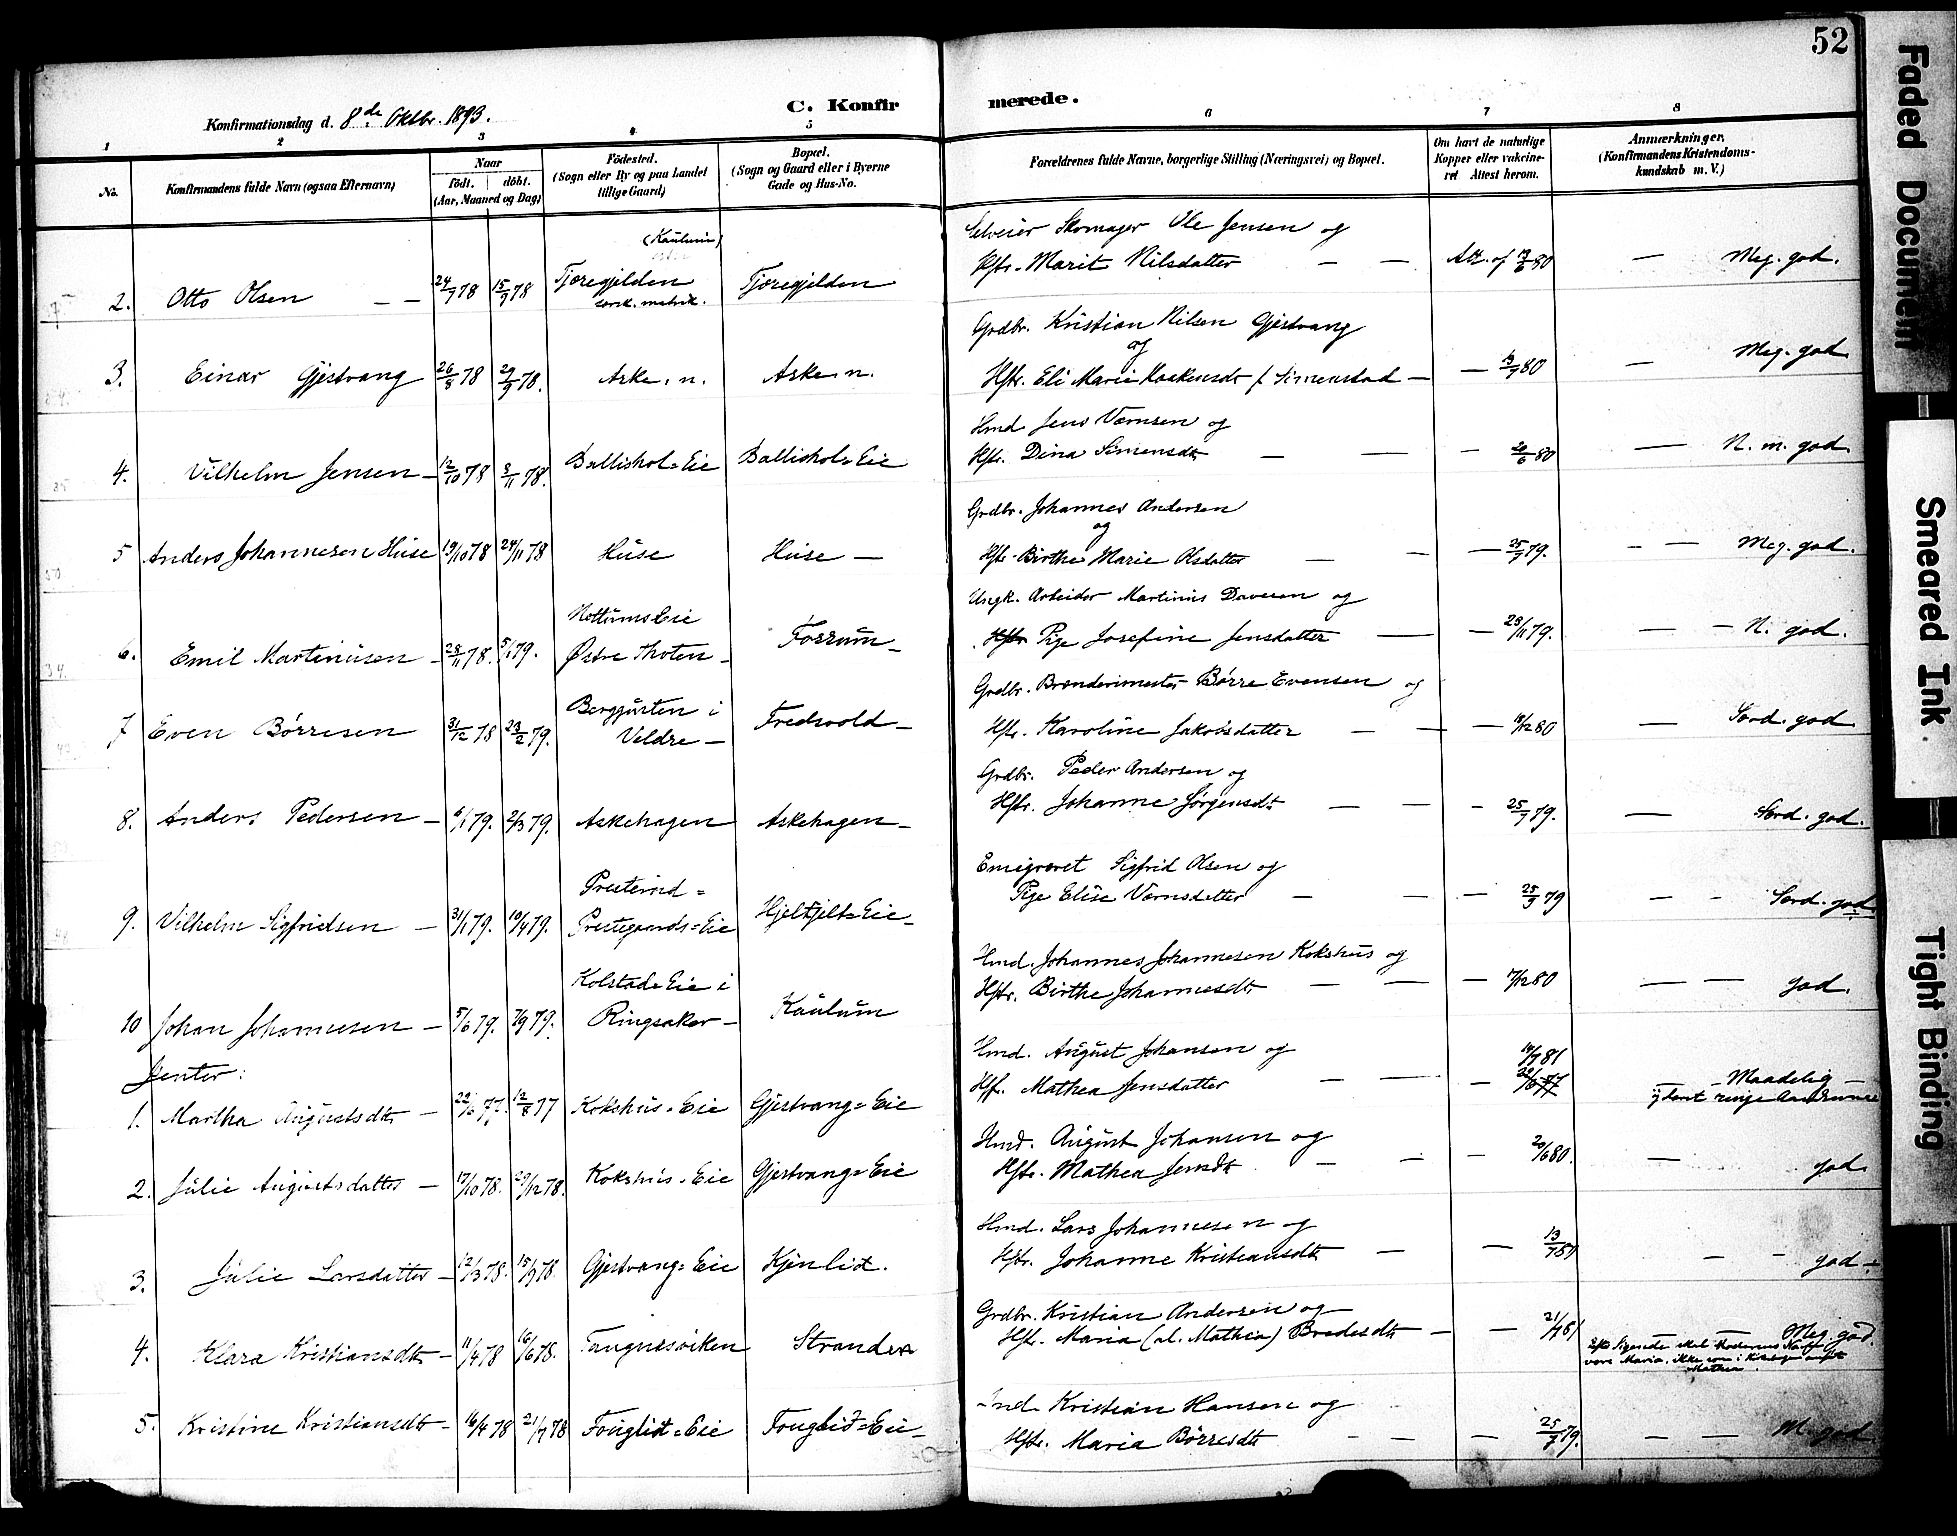 52
Konfirmationsdag d. 8de Oktbr. 1893.
C. Konfirmerede.
1 2 3 4 5 6 7 8
No.
Konfirmandens fulde Navn (ogsaa Efternavn)
Naar
födt. döbt.
(Aar, Maaned og Dag)
Födested.
(Sogn eller By og paa Landet
tillige Gaard)
Bopæl.
(Sogn og Gaard eller i Byerne
Gade og Hus-No.
Forældrenes fulde Navne, borgerlige Stilling (Næringsvei) og Bopæl.
Om havt de naturlige
Kopper eller vakcine-
ret Attest herom.
Anmærkninger.
(Konfirmandens Kristendoms-
kundskab m. V.)
(Kaulum)
Selveier Skomager Ole Jensen og
2. Otto Olsen — — 24/7 78 15/9 78 Tjæregjelden Tjæregjelden Hstr. Marit Nilsdatter — — Att. af 80 — Meg. god.
særsk. matrik.
Grdbr. Kristian Nilsen Gjestvang
og
3. Einar Gjestvang 26/8 78 29/9 78. Aske, n. Aske n. Hstr. Eli Marie Haakensdt f. Simenstad — — 80 — Meg. god
Hmd Jens Værnsen og
4. Vilhelm Jensen — 12/10 78 3/11 78. Ballishol=Eie Ballishol=Eie Hstr. Dina Simensdt — — — 20/6 80 — N. m. god
Grdbr. Johannes Andersen
og
5 Anders Johannesen Huse 19/10 78 24/11 78 Huse Huse — Hstr. Birthe Marie Olsdatter — — — 25/7 79. — — Meg. god.
Ungk. Arbeider Martinus Davesen og
Nettums Eie
6. Emil Martinusen — 28/11 78. 5/1 79. Østre Thoten — Fossum — Hstr Pige Josefine Jensdatter — — 28/11 79. — N. god.
Grdbr. Brænderimester Børre Evensen og
Berggarten i
7 Even Børresen 31/12 78 23/2 79. Veldre — Fredsvold — Hstr. Karoline Jakobsdatter — — — 18/12 80 — Særd. god
Grdbr. Peder Andersen og
8. Anders Pedersen — 6/1 79. 2/3 79. Askehagen Askehagen — Hstr. Johanne Jørgensdt — — — 25/7 79. — Særd. god.
Emigreret Sigfrid Olsen og
9. Vilhelm Sigfridsen — 31/1 79. 10/4 79. Prestegaards=Eie Hjeltjelt=Eie — Pige Elise Værnsdatter — — — 25/3 79 — - Særd. god
Hmd. Johannes Johannesen Kokshus og
Kolstad=Eie i
10 Johan Johannesen — 5/6 79. 7/9 79. Ringsaker — Kaulum Hstr. Birthe Johannesdt — — — 7/12 80 — — god.
Jenter:
Hmd. August Johansen og
1. Martha Augustsdt — 22/6 77. 12/8 77 Kokshus=Eie Gjestvang=Eie Hstr. Mathea Jensdatter — — — 19/7 81 — Maadelig —
Hmd. August Johansen og
2. Julie Augustsdatter — 17/10 78. 29/12 78. Kokshus=Eie Gjestvang=Eie Hstr. Mathea Jensdt — — — 20/6 80. — god
Hmd. Lars Johannesen og
3. Julie Larsdatter — 12/3 78. 15/9 78. Gjestvang=Eie Kjenlid. Hstr. Johanne Kristiansdt — — 13/7 80 — - god —
Grdbr. Kristian Andersen og
4. Klara Kristiansdt — 11/4 78 16/6 78. Tangnesviken Stranden Hstr. Maria (al. Mathea) Bredesdt — — 21/7 81 Meg. god.
efter Sigende skal Moderens Navn
være Maria, ikke som i Kirkebogen anført
Mathea.
Kristian Hansen og
5. Kristine Kristiansdt — 16/4 78 21/7 78 Fouglid=Eie Fouglid=Eie — Hstr. Maria Børresdt — — — 25/7 79. — — M. god
Faded Document
Smeared Ink
Tight Binding